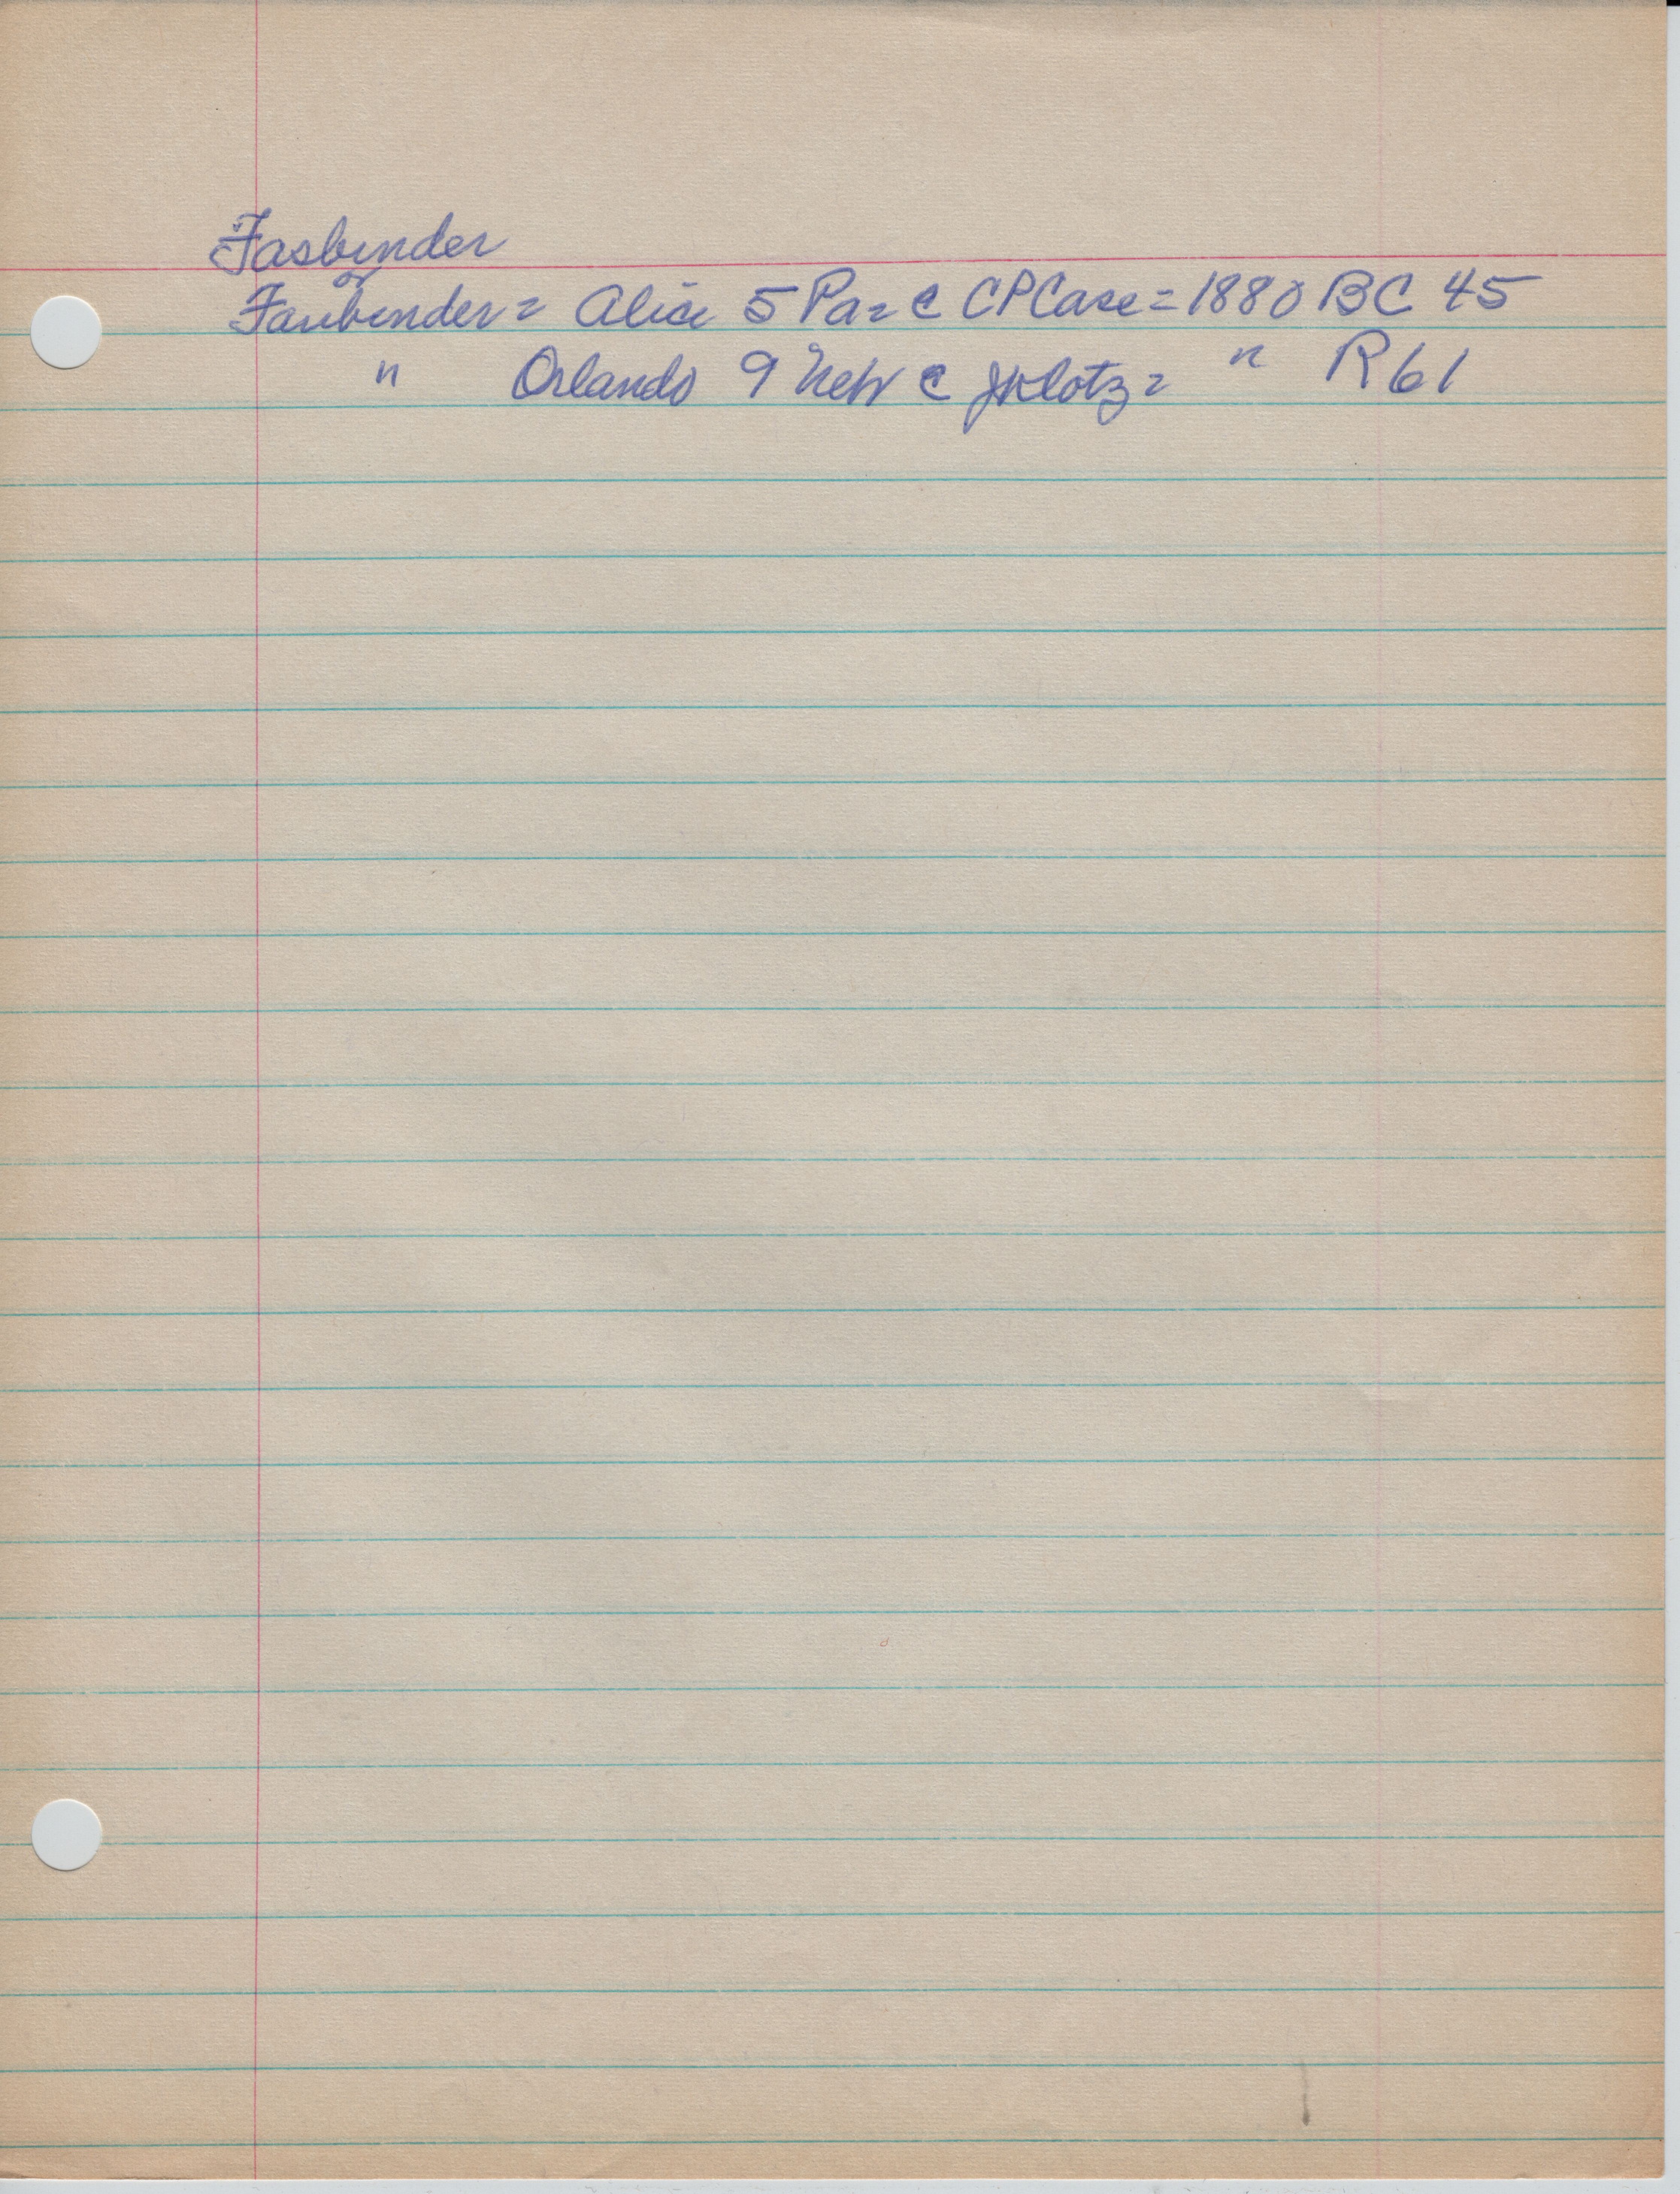 Fasbinder
or
Faubinder = Alice 5 Pa = c CP Case = 1880 BC 45
" Orlando 9 Neph c JK Klotz = " R 61